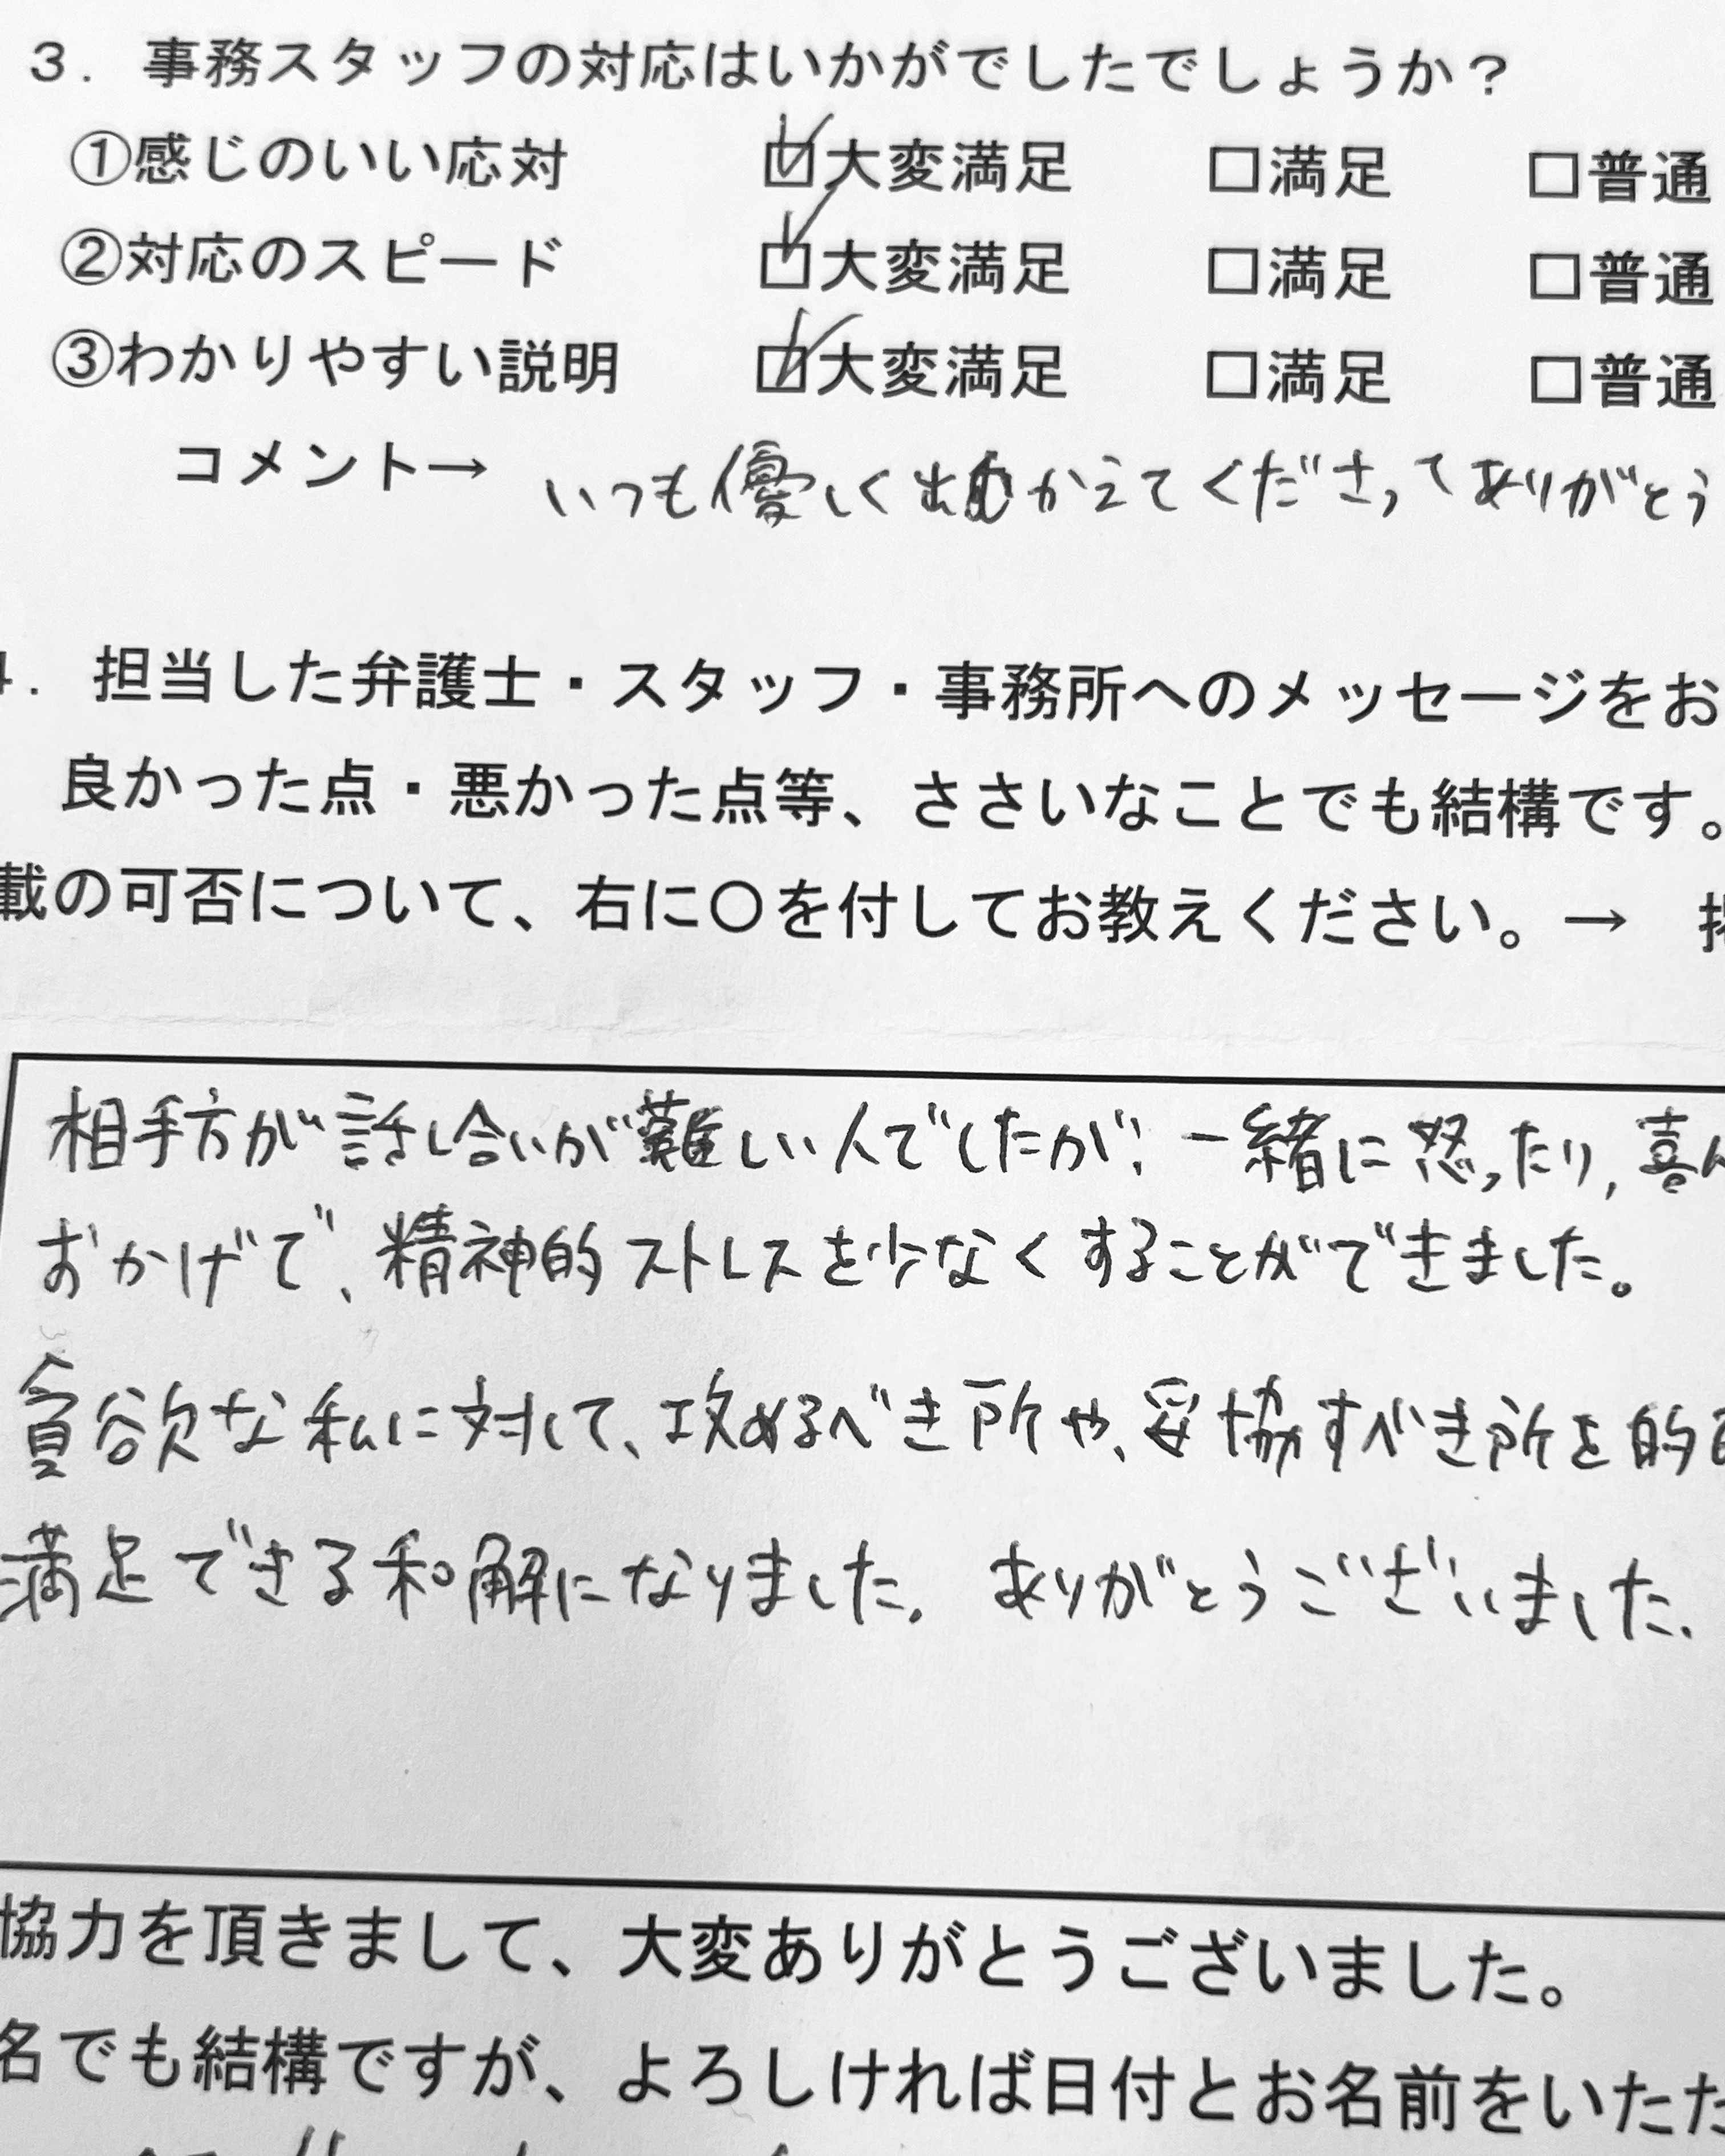 ３．事務スタッフの対応はいかがでしたでしょうか？
①感じのいい応対　☑大変満足　□満足　□普通
②対応のスピード　☑大変満足　□満足　□普通
③わかりやすい説明　☑大変満足　□満足　□普通
コメント→ いつも優しく出むかえてくださってありがとう
4．担当した弁護士・スタッフ・事務所へのメッセージをお
良かった点・悪かった点等、ささいなことでも結構です。
載の可否について、右に〇を付してお教えください。→
相手方が話し合いが難しい人でしたが、一緒に怒ったり、喜ん
おかげで、精神的ストレスを少なくすることができました。
貪欲な私に対して、攻めるべき所や、妥協すべき所を的
満足できる和解になりました。ありがとうございました。
協力を頂きまして、大変ありがとうございました。
名でも結構ですが、よろしければ日付とお名前をいただ